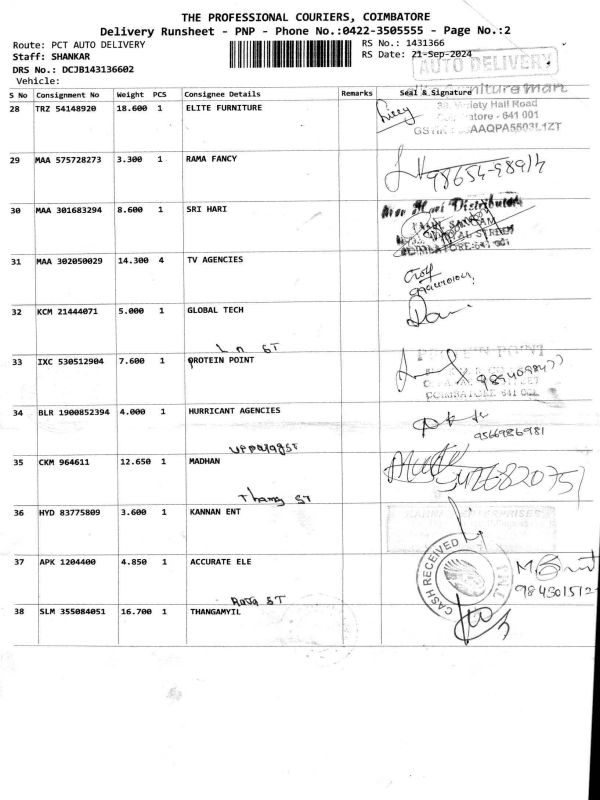 THE PROFESSIONAL COURIERS, COIMBATORE
Delivery Runsheet - PNP - Phone No.:0422-3505555 - Page No.:2
Route: PCT AUTO DELIVERY
Staff: SHANKAR
DRS No.: DCJB143136602
Vehicle:
RS No.: 1431366
RS Date: 21-Sep-2024
AUTO DELIVERY
S No Consignment No Weight PCS Consignee Details Remarks Seal & Signature
28 TRZ 54148920 18.600 1 ELITE FURNITURE
Hall Road
641 001
AAQPA5503L1ZT
29 MAA 575728273 3.300 1 RAMA FANCY
30 MAA 301683294 8.600 1 SRI HARI
Hari Distributors
31 MAA 302050029 14.300 4 TV AGENCIES
32 KCM 21444071 5.000 1 GLOBAL TECH
Ln ST
33 IXC 530512904 7.600 1 PROTEIN POINT
PROTEIN POINT
COIMBATORE 641 001
34 BLR 1900852394 4.000 1 HURRICANT AGENCIES
9566986981
35 CKM 964611 12.650 1 MADHAN
36 HYD 83775809 3.600 1 KANNAN ENT
37 APK 1204400 4.850 1 ACCURATE ELE
CASH RECEIVED
TMJ
Raja ST
38 SLM 355084051 16.700 1 THANGAMYIL